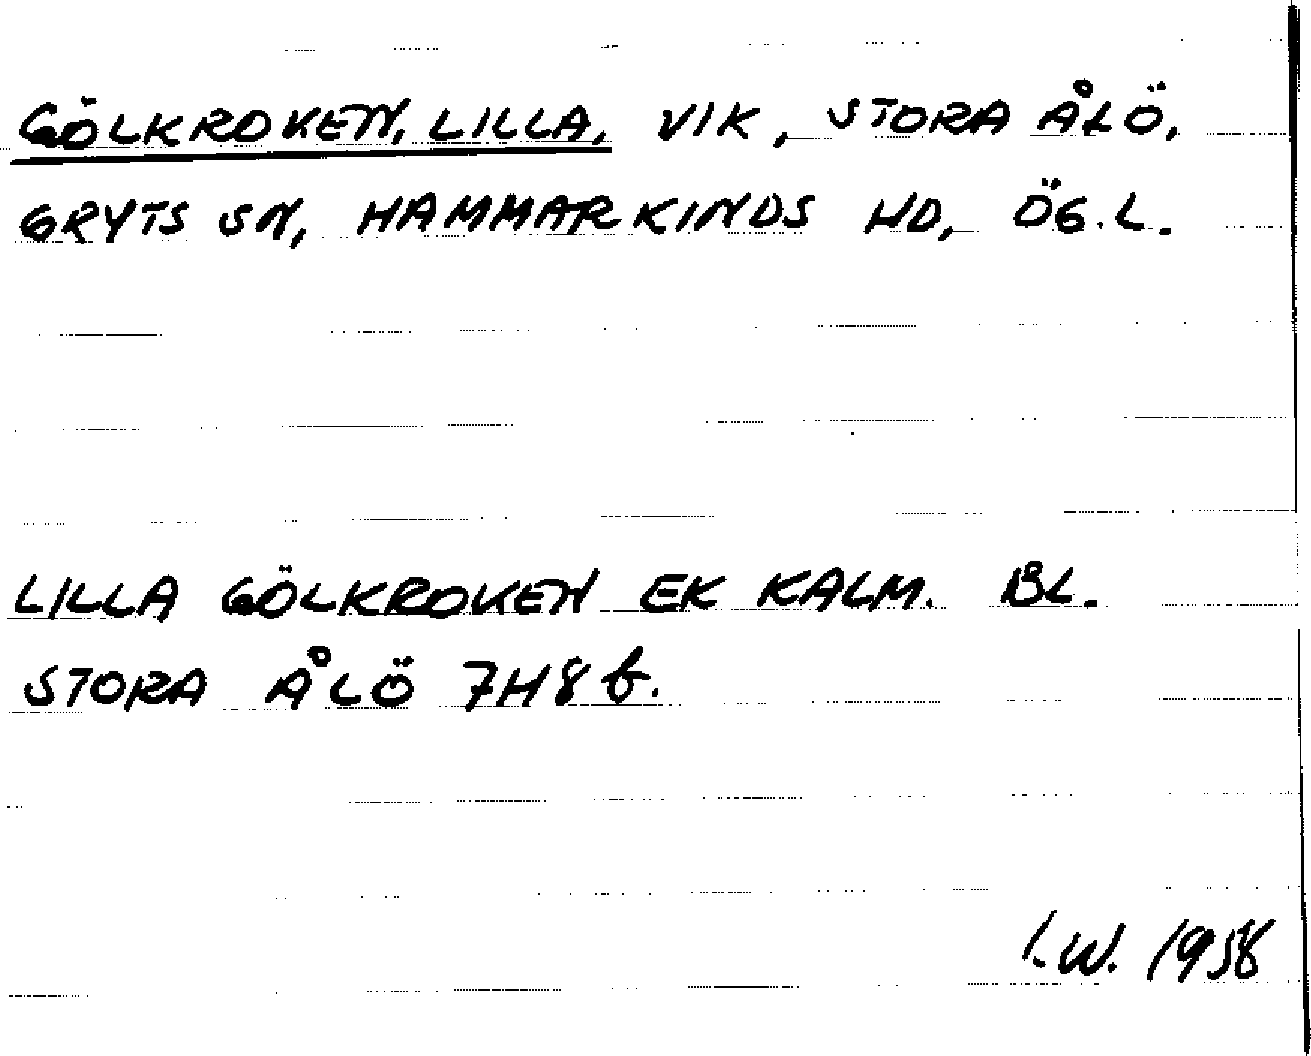 GÖLKROKEN, LILLA, VIK, STORA ÅLÖ,
GRYTS SN, HAMMARKINDS HD, ÖG.L.
LILLA GÖLKROKEN EK KALM. BL.
STORA ÅLÖ 7H8b.
I.W. 1958